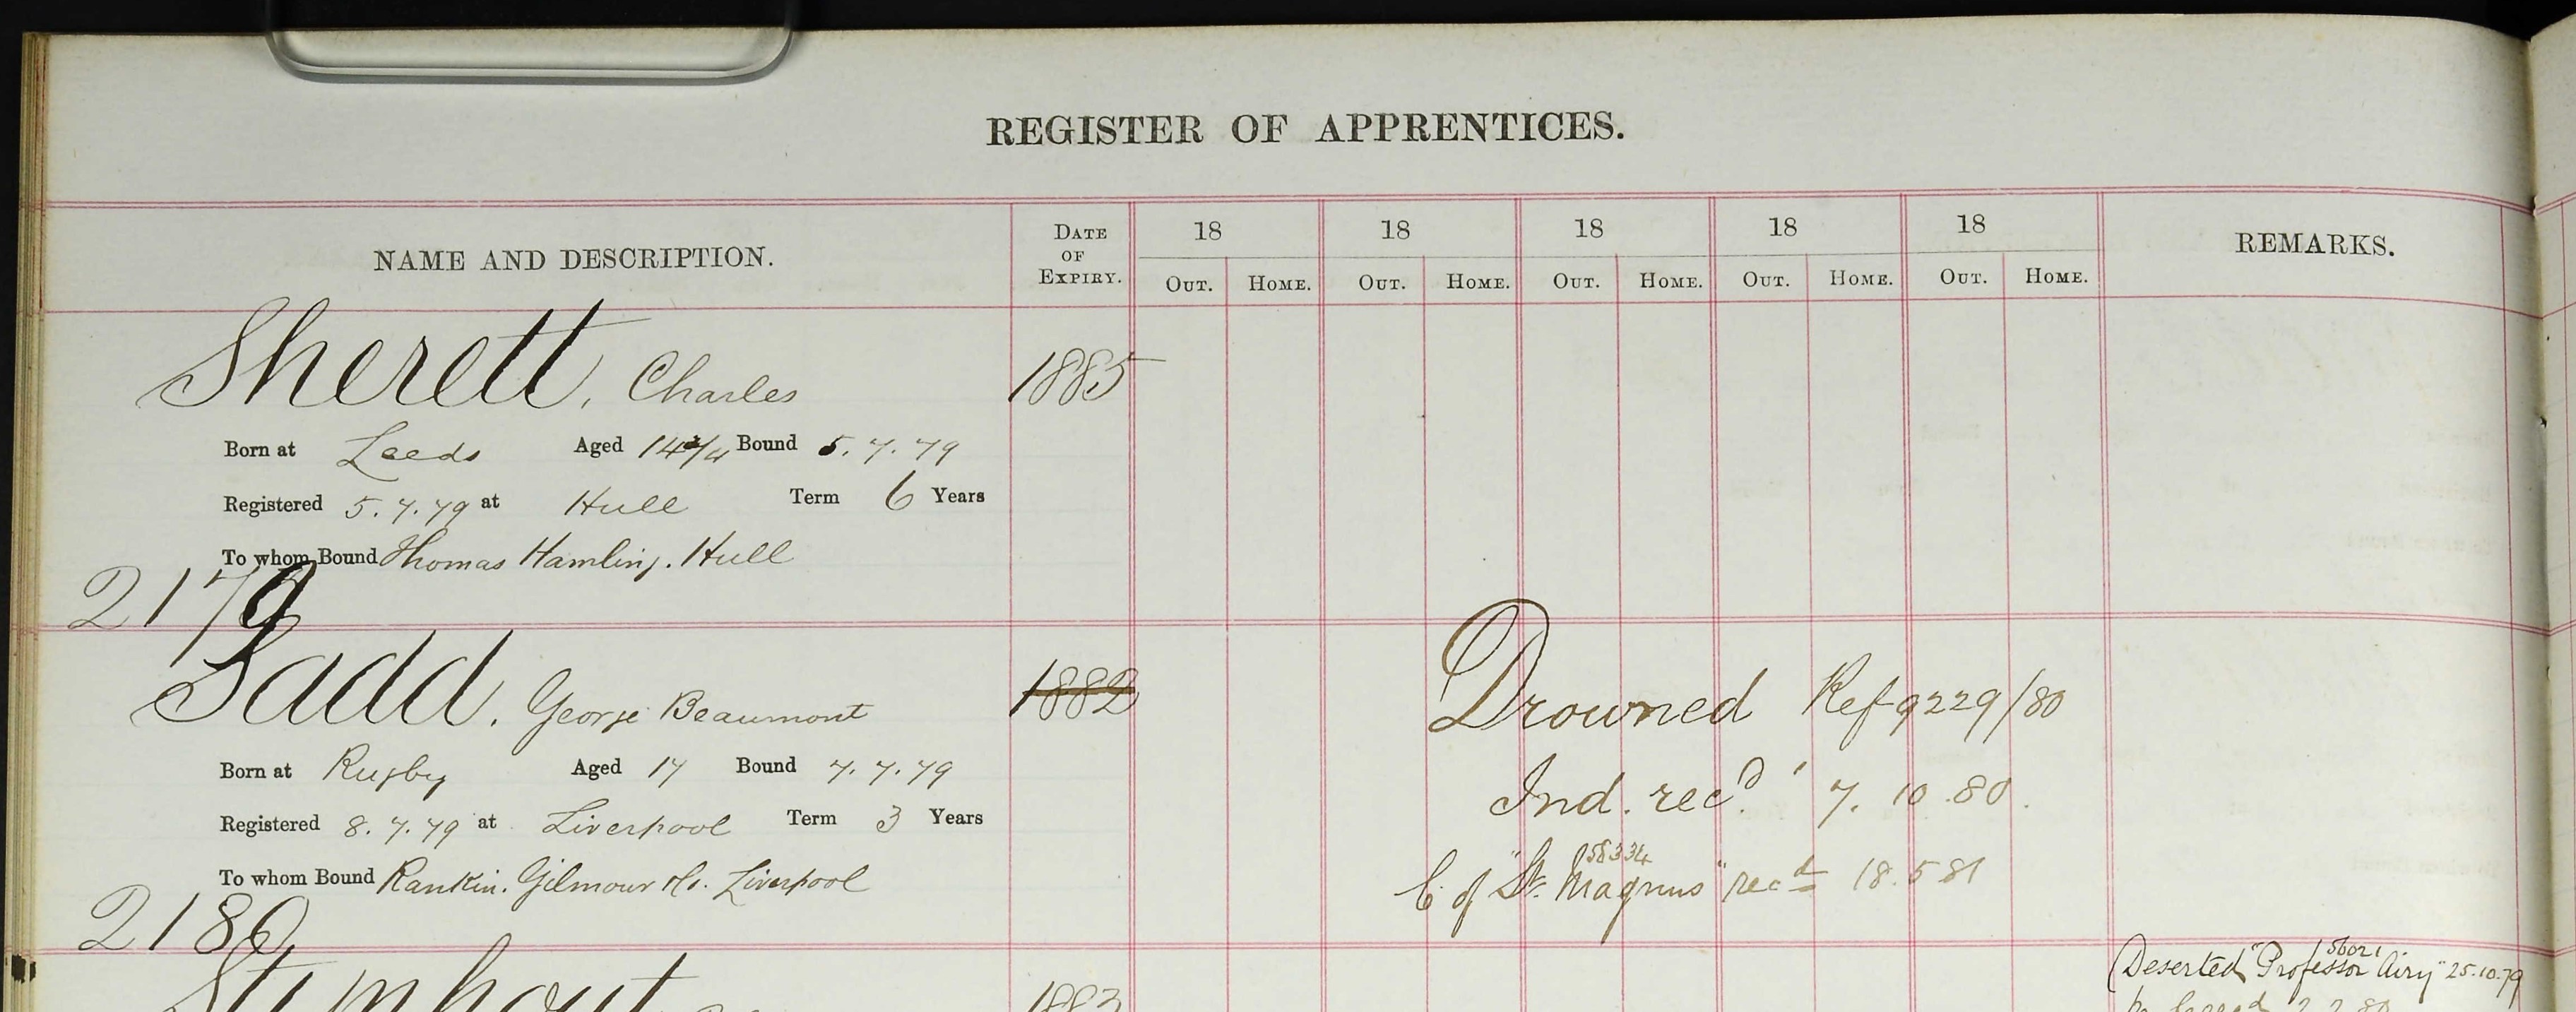 REGISTER OF APPRENTICES.
NAME AND DESCRIPTION. DATE OF EXPIRY. 18 18 18 18 18 REMARKS.
OUT. HOME. OUT. HOME. OUT. HOME. OUT. HOME. OUT. HOME.
Sherett, Charles 1885
Born at Leeds Aged 14 3/4 Bound 5.7.79
Registered 5.7.79 at Hull Term 6 Years
To whom Bound Thomas Hamling. Hull
2179
Sadd, George Beaumont 1882 Drowned Ref 9229/80
Born at Rugby Aged 17 Bound 7.7.79 Ind. recd. 7.10.80.
Registered 8.7.79 at Liverpool Term 3 Years
58334
To whom Bound Rankin. Gilmour & Co. Liverpool C of "St. Magnus" recd 18.5.81
2180
56021
1883 Deserted "Professor Airy" 25.10.79